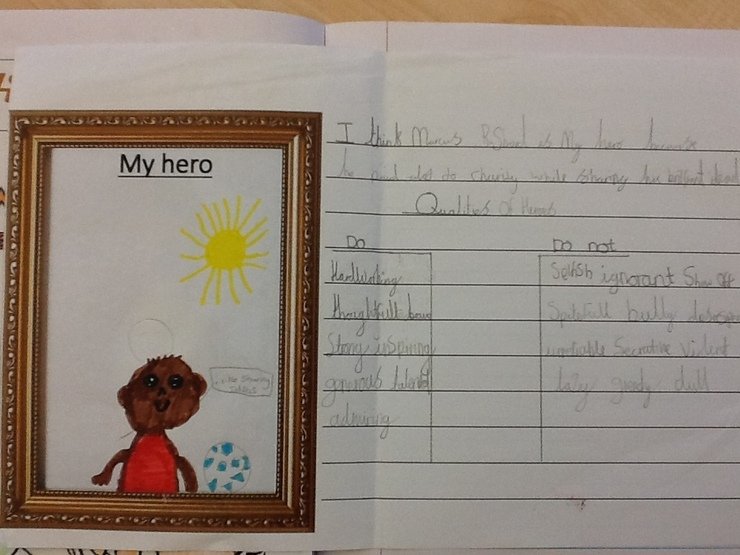 My hero
I think Marcus Rshad is My hero because
he paid alot to charity while sharing his brilliant
Qualities of Heroes
Do
Do not
Hardworking
Selfish ignorant Show off
thoughtfull
Spitefull bully
Strong inspiring
Secrative Violent
genurous
lazy greedy dull
admiring
I like Sharing